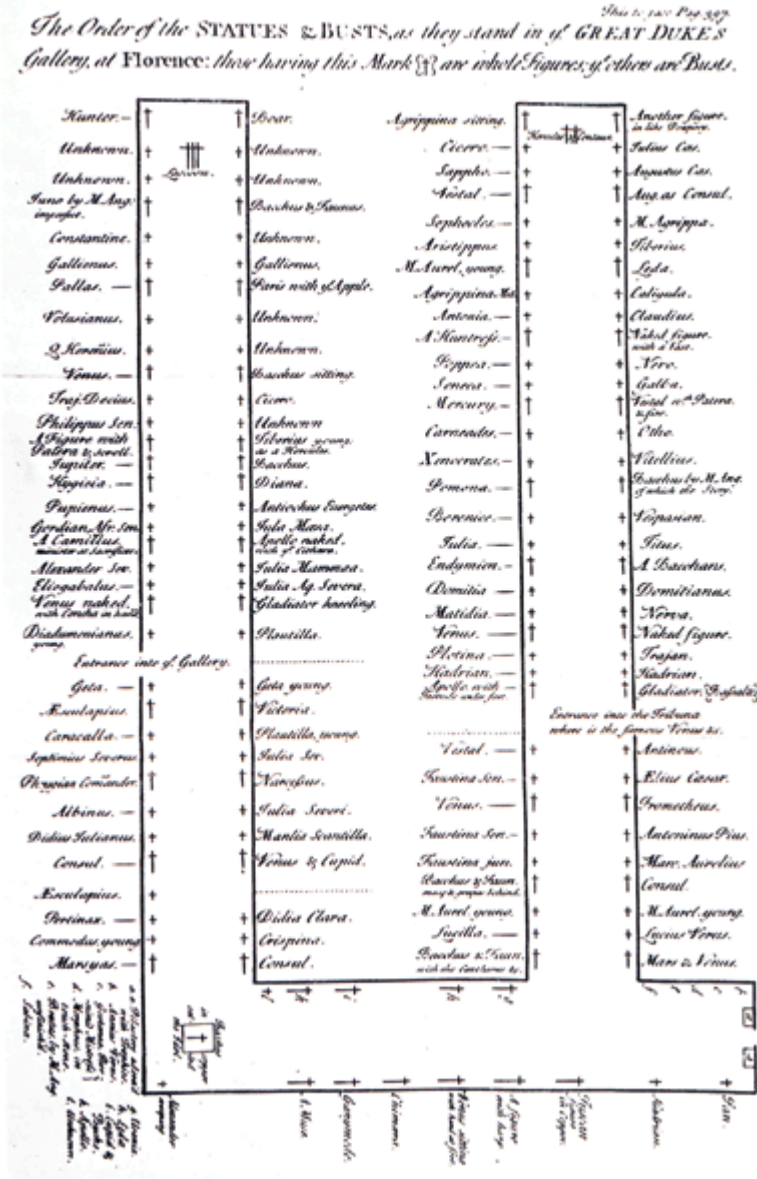 This to face Pag. 397
The Order of the STATUES & BUSTS, as they stand in yᵉ GREAT DUKES
Gallery, at Florence: those having this Mark are whole Figures; yᵉ others are Busts.
Hunter.
Unknown.
Unknown.
Juno by M. Ang.
imperfect.
Constantine.
Gallienus.
Pallas.
Volusianus.
Q. Herennius.
Venus.
Traj. Decius.
Philippus Sen.
A Figure with
Patera & scroll.
Jupiter.
Hygieia.
Pupienus.
Gordian Afr. Sen.
A Camillus,
Alexander Sev.
Eliogabalus.
Venus naked,
Diadumenianus
young.
Entrance into yᵉ Gallery.
Geta.
Æsculapius.
Caracalla.
Septimius Severus.
Phrygian Comander.
Albinus.
Didius Julianus.
Consul.
Æsculapius.
Pertinax.
Commodus young
Marsyas.
Laocoon.
Boar.
Unknown.
Unknown.
Bacchus & Faunus.
Unknown.
Gallienus.
Paris with yᵉ Apple.
Unknown.
Unknown.
Bacchus sitting.
Cicero.
Unknown
Tiberius young
as a Hercules.
Bacchus.
Diana.
Antiochus Euergetes.
Julia Mæsa.
Apollo naked,
Julia Mammea.
Julia Aq. Severa.
Gladiator kneeling.
Plautilla.
Geta young.
Victoria.
Plautilla young.
Julia Sev.
Narcissus.
Julia Severi.
Manlia Scantilla.
Venus & Cupid.
Didia Clara.
Crispina.
Consul.
Agrippina sitting.
Cicero.
Sappho.
Vestal.
Sophocles.
Aristippus.
M. Aurel. young.
Agrippina Ma.
Antonia.
A Huntress.
Poppea.
Seneca.
Mercury.
Carneades.
Xenocrates.
Pomona.
Berenice.
Julia.
Endymion.
Domitia
Matidia
Venus.
Plotina.
Hadrian.
Apollo with
Vestal.
Faustina Sen.
Venus.
Faustina Sen.
Faustina jun.
Bacchus & Faun.
M. Aurel. young.
Lucilla.
Bacchus & Faun.
Hercules & Centaur.
Another figure.
in like Drapery.
Julius Cæs.
Augustus Cæs.
Aug. as Consul.
M. Agrippa.
Tiberius.
Leda.
Caligula.
Claudius.
Naked figure
with a Vase.
Nero.
Galba.
Vestal wᵗʰ Patera
& fire.
Otho.
Vitellius.
Bacchus by M. Ang.
of which the Story.
Vespasian.
Titus.
A Bacchans.
Domitianus.
Nerva.
Naked figure.
Trajan.
Hadrian.
Gladiator.
Entrance into the Tribuna
where is the famous Venus &c.
Antinous.
Ælius Cæsar.
Prometheus.
Antoninus Pius.
Marc. Aurelius
Consul.
M. Aurel. young.
Lucius Verus.
Mars & Venus.
Alexander
A Muse
Ganymede.
Venus sitting
A figure
Tuscan
figure
in Copper.
Hadrian.
Pan.